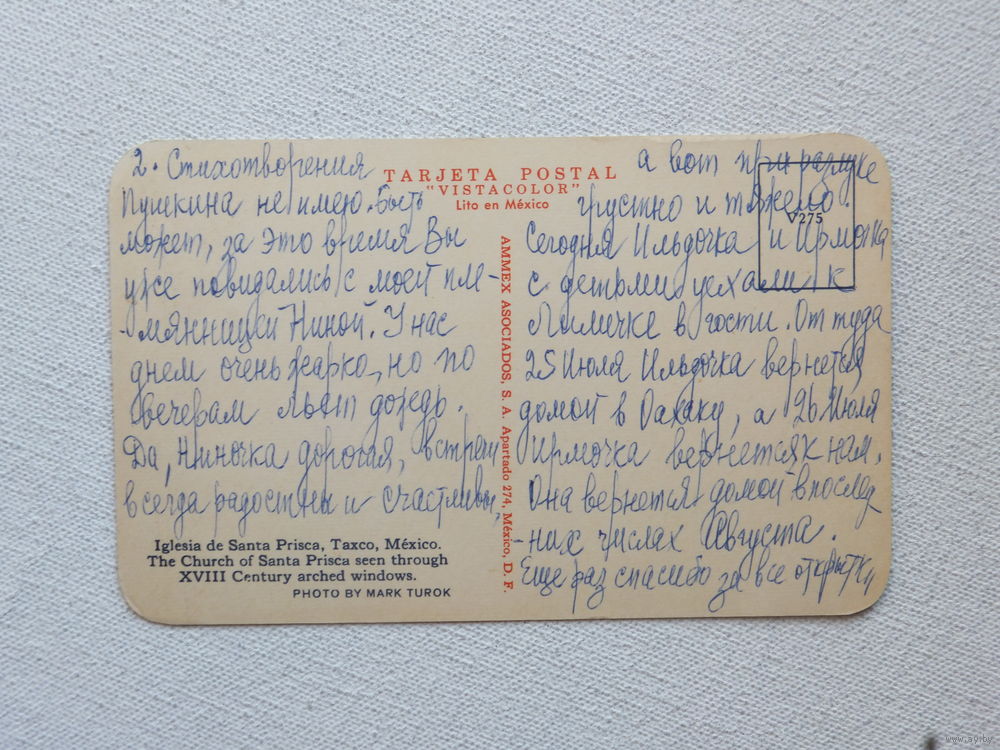 2. Стихотворения
Пушкина не имею. Быть
может, за это время Вы
уже повидались с моей пле-
-мянницей Ниной. У нас
днем очень жарко, но по
вечерам льет дождь.
Да, Ниночка дорогая, встречи
всегда радостны и счастливы,
Iglesia de Santa Prisca, Taxco, México.
The Church of Santa Prisca seen through
XVIII Century arched windows.
PHOTO BY MARK TUROK
TARJETA POSTAL
"VISTACOLOR"
Lito en México
AMMEX ASOCIADOS, S. A. Apartado 274, México, D. F.
V275
а вот при разлуке
грустно и тяжело.
Сегодня Ильдочка и Ирмочка
с детьми уехали к
в гости. Оттуда
25 Июля Ильдочка вернется
домой в Оахаку, а 26 Июля
Ирмочка вернется к нам.
Она вернется домой в послед
-них числах Августа.
Еще раз спасибо за все открытки
www.ay.by